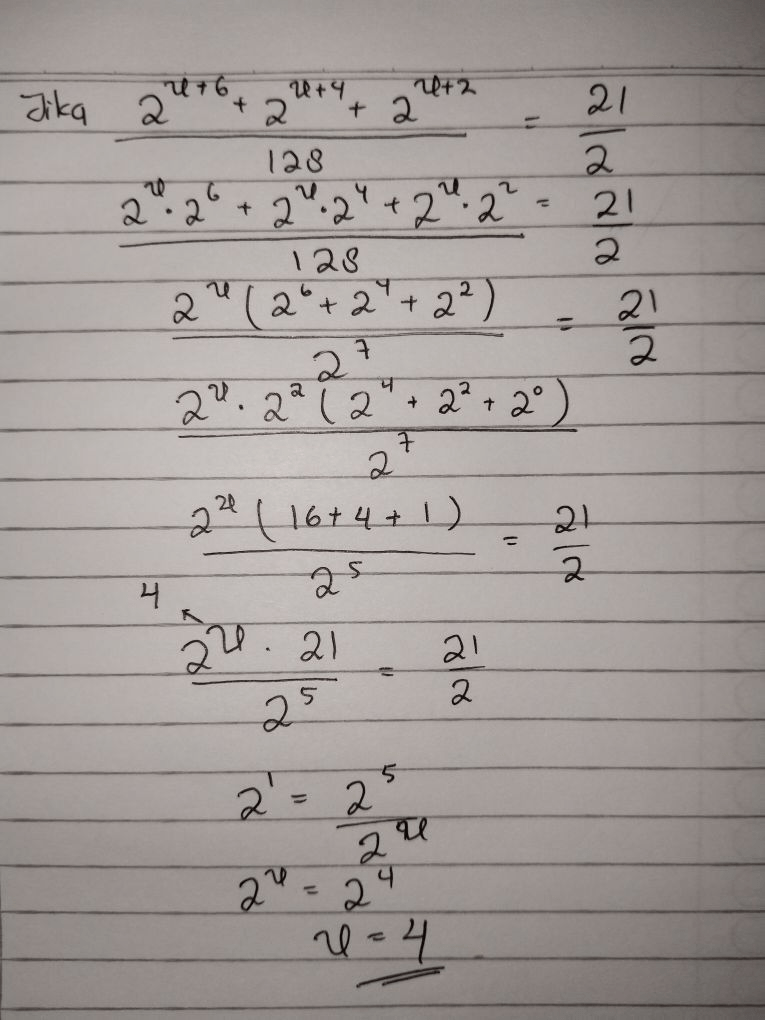 Jika (2^(x+6) + 2^(x+4) + 2^(x+2))/128 = 21/2
(2^x · 2^6 + 2^x · 2^4 + 2^x · 2^2)/128 = 21/2
2^x (2^6 + 2^4 + 2^2)/2^7 = 21/2
2^x · 2^2 (2^4 + 2^2 + 2^0)/2^7
2^x (16 + 4 + 1)/2^5 = 21/2
4
(2^x · 21)/2^5 = 21/2
2^1 = 2^5/2^x
2^x = 2^4
x = 4